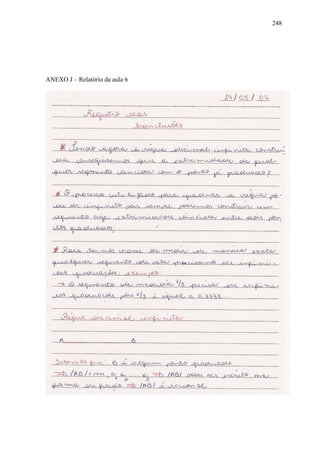 248
ANEXO J – Relatório da aula 6
27/05/04
Registro das
Conclusões
* Tendo agora a régua decimal infinita construí-
da conseguiremos que a extremidade de qual-
quer segmento coincida com o ponto já graduado?
* O processo utilizado para graduar a régua po-
de ser infinito pois sempre podemos construir um
segmento cuja extremidade coincida entre dois pon
tos graduados.
* Para sermos chame de medir de maneira exata
qualquer segmento de reta precisamos de infini-
tas graduações: exemplo:
→ O segmento de medida 1/3 precisa de infini-
tas graduações pois 1/3 é igual a 0,3333...
Régua decimal infinita
A B
Sabemos que: B é algum ponto graduado
⇒ |AB| = m, a₁ a₂ a₃ ⇒ |AB| pode ser escrito na
forma de fração ⇒ |AB| é racional